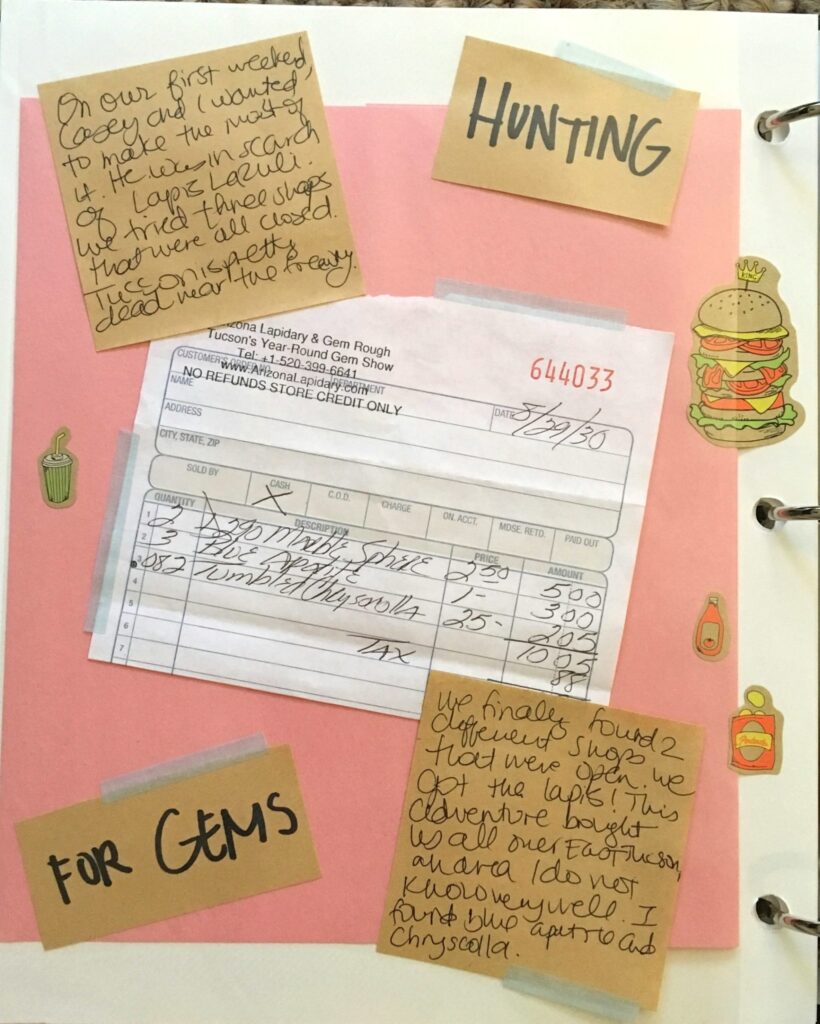 On our first weekend,
Casey and I wanted
to make the most of
it. He was in search
of Lapis Lazuli.
we tried three shops
that were all closed.
Tucson is pretty
dead near the freeway.
HUNTING
KING
izona Lapidary & Gem Rough
Tucson's Year-Round Gem Show
Tel: +1-520-399-6641
www.ArizonaLapidary.com
NO REFUNDS STORE CREDIT ONLY
644033
CUSTOMER'S ORDER NO. DEPARTMENT
DATE 8/29/30
NAME
ADDRESS
CITY, STATE, ZIP
SOLD BY CASH C.O.D. CHARGE ON. ACCT. MDSE. RETD. PAID OUT
X
QUANTITY DESCRIPTION PRICE AMOUNT
1 2 Marble Sphere 2.50 500
2 3 Blue Apatite 1- 300
3 .082 Tumbled Chrysocolla 25- 205
4 1005
5 TAX 88
6
7
We finally found 2
different shops
that were open. we
got the lapis! This
adventure bought
us all over East Tucson,
an area I do not
know very well. I
found blue apatite and
Chryscolla.
FOR GEMS